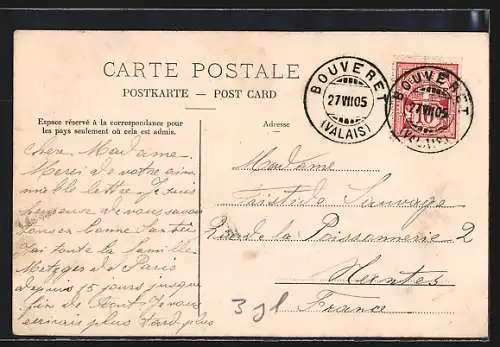 CARTE POSTALE
POSTKARTE — POST CARD
Espace réservé à la correspondance pour
les pays seulement où cela est admis.
Adresse
BOUVERET
27 VII 05
(VALAIS)
BOUVERET
27 VII 05
10
Chère Madame
Merci de votre aima
ble lettre Je suis
heureuse de vous savoir
en bonne Santé
J'ai toute la famille
Metzger de Paris
depuis 15 jours jusque
fin de Août Je vous
écrirais plus tard plus
Madame
Aristide Sauvage
Rue de la Poissonnerie 2
Nantes
France